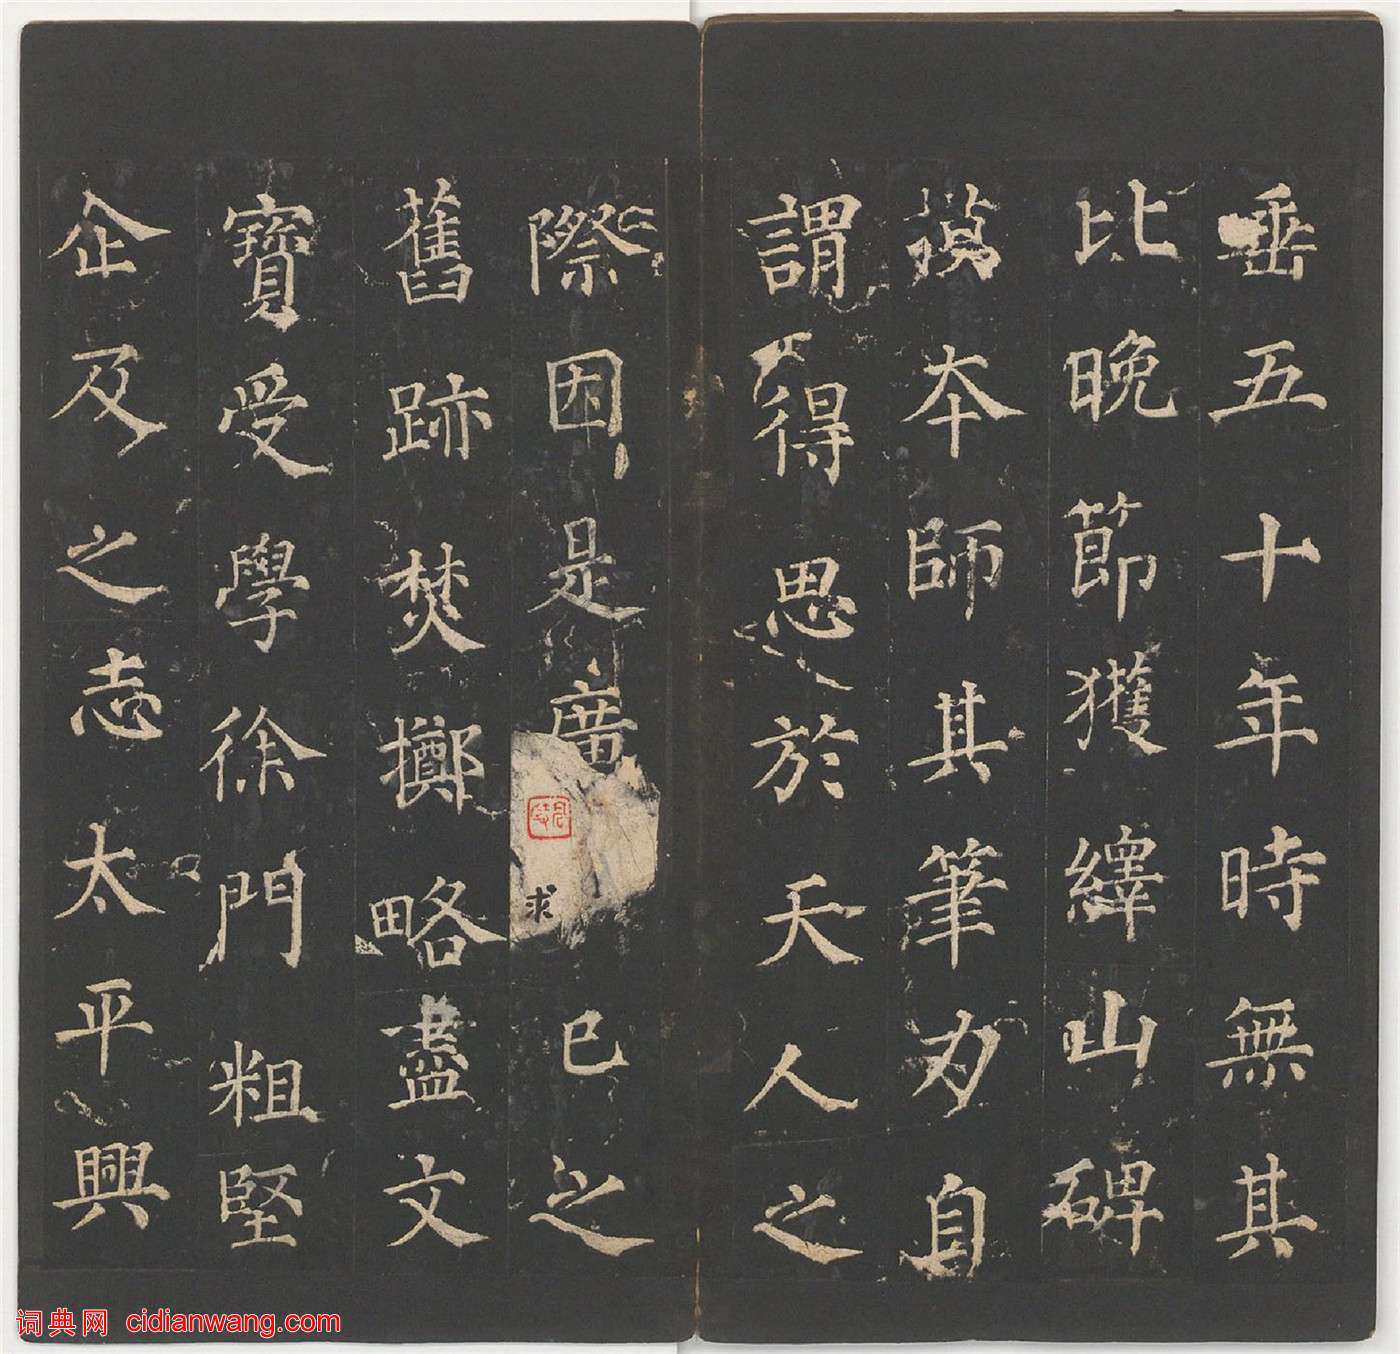 垂五十年時無其
比晚節獲繹山碑
摸本師其筆力自
謂得思於天人之
際因是廣求己之
舊跡焚擲略盡文
寶受學徐門粗堅
企及之志太平興
词典网 cidianwang.com